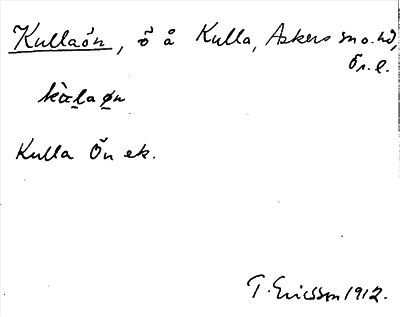 Kullaön, ö å Kulla, Askers sn o. hd,
Ör. l.
kɑ̀laøn
Kulla Ön ek.
T. Ericsson 1912.